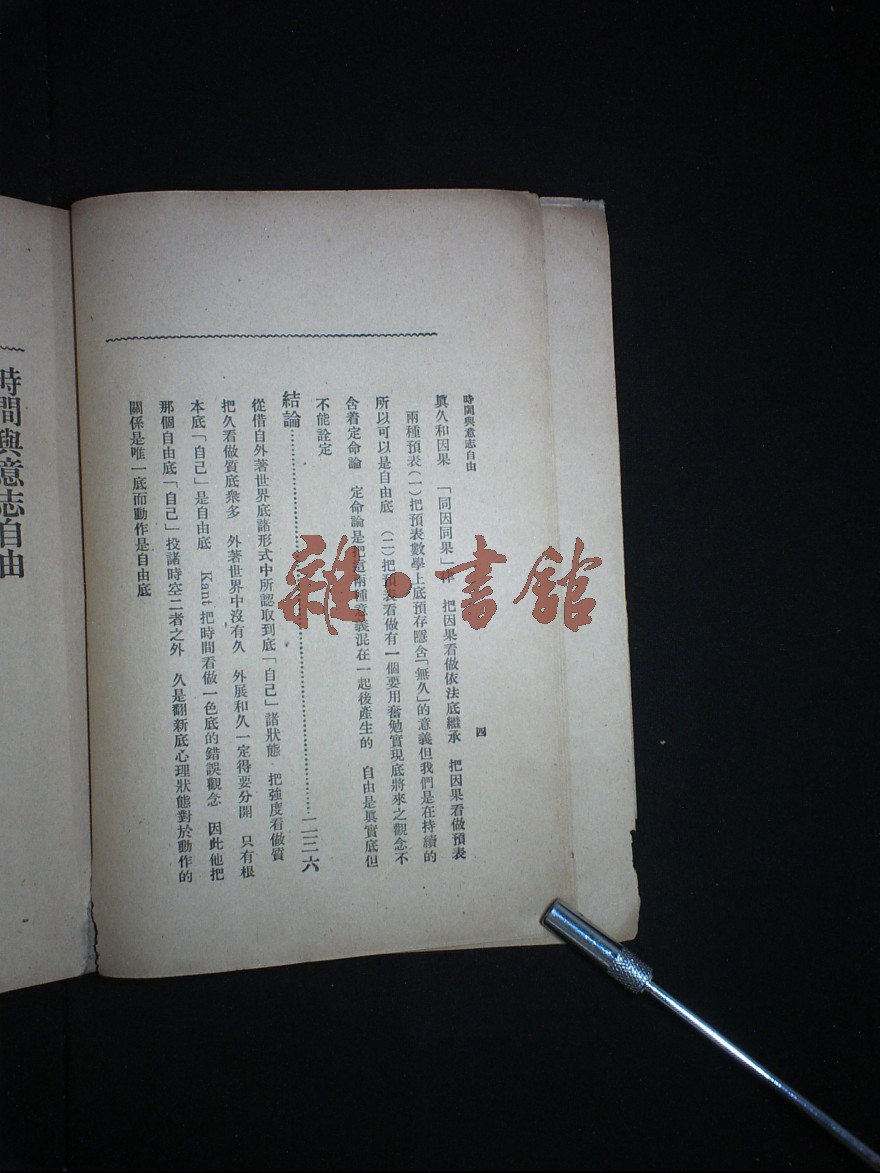 時間與意志自由
四
眞久和因果　「同因同果」律　把因果看做依法底繼承　把因果看做預表
兩種預表(一)把預表數學上底預存隱含「無久」的意義但我們是在持續的
所以可以是自由底　(二)把預表看做有一個要用奮勉實現底將來之觀念不
含着定命論　定命論是把這兩種意義混在一起後產生的　自由是眞實底但
不能詮定
結論…………………………二二六
從借自外著世界底諸形式中所認取到底「自己」諸狀態　把強度看做質
把久看做質底衆多　外著世界中沒有久　外展和久一定得要分開　只有根
本底「自己」是自由底　Kant 把時間看做一色底的錯誤觀念　因此他把
那個自由底「自己」投諸時空二者之外　久是翻新底心理狀態對於動作的
關係是唯一底而動作是自由底
時間與意志自由
雜·書館